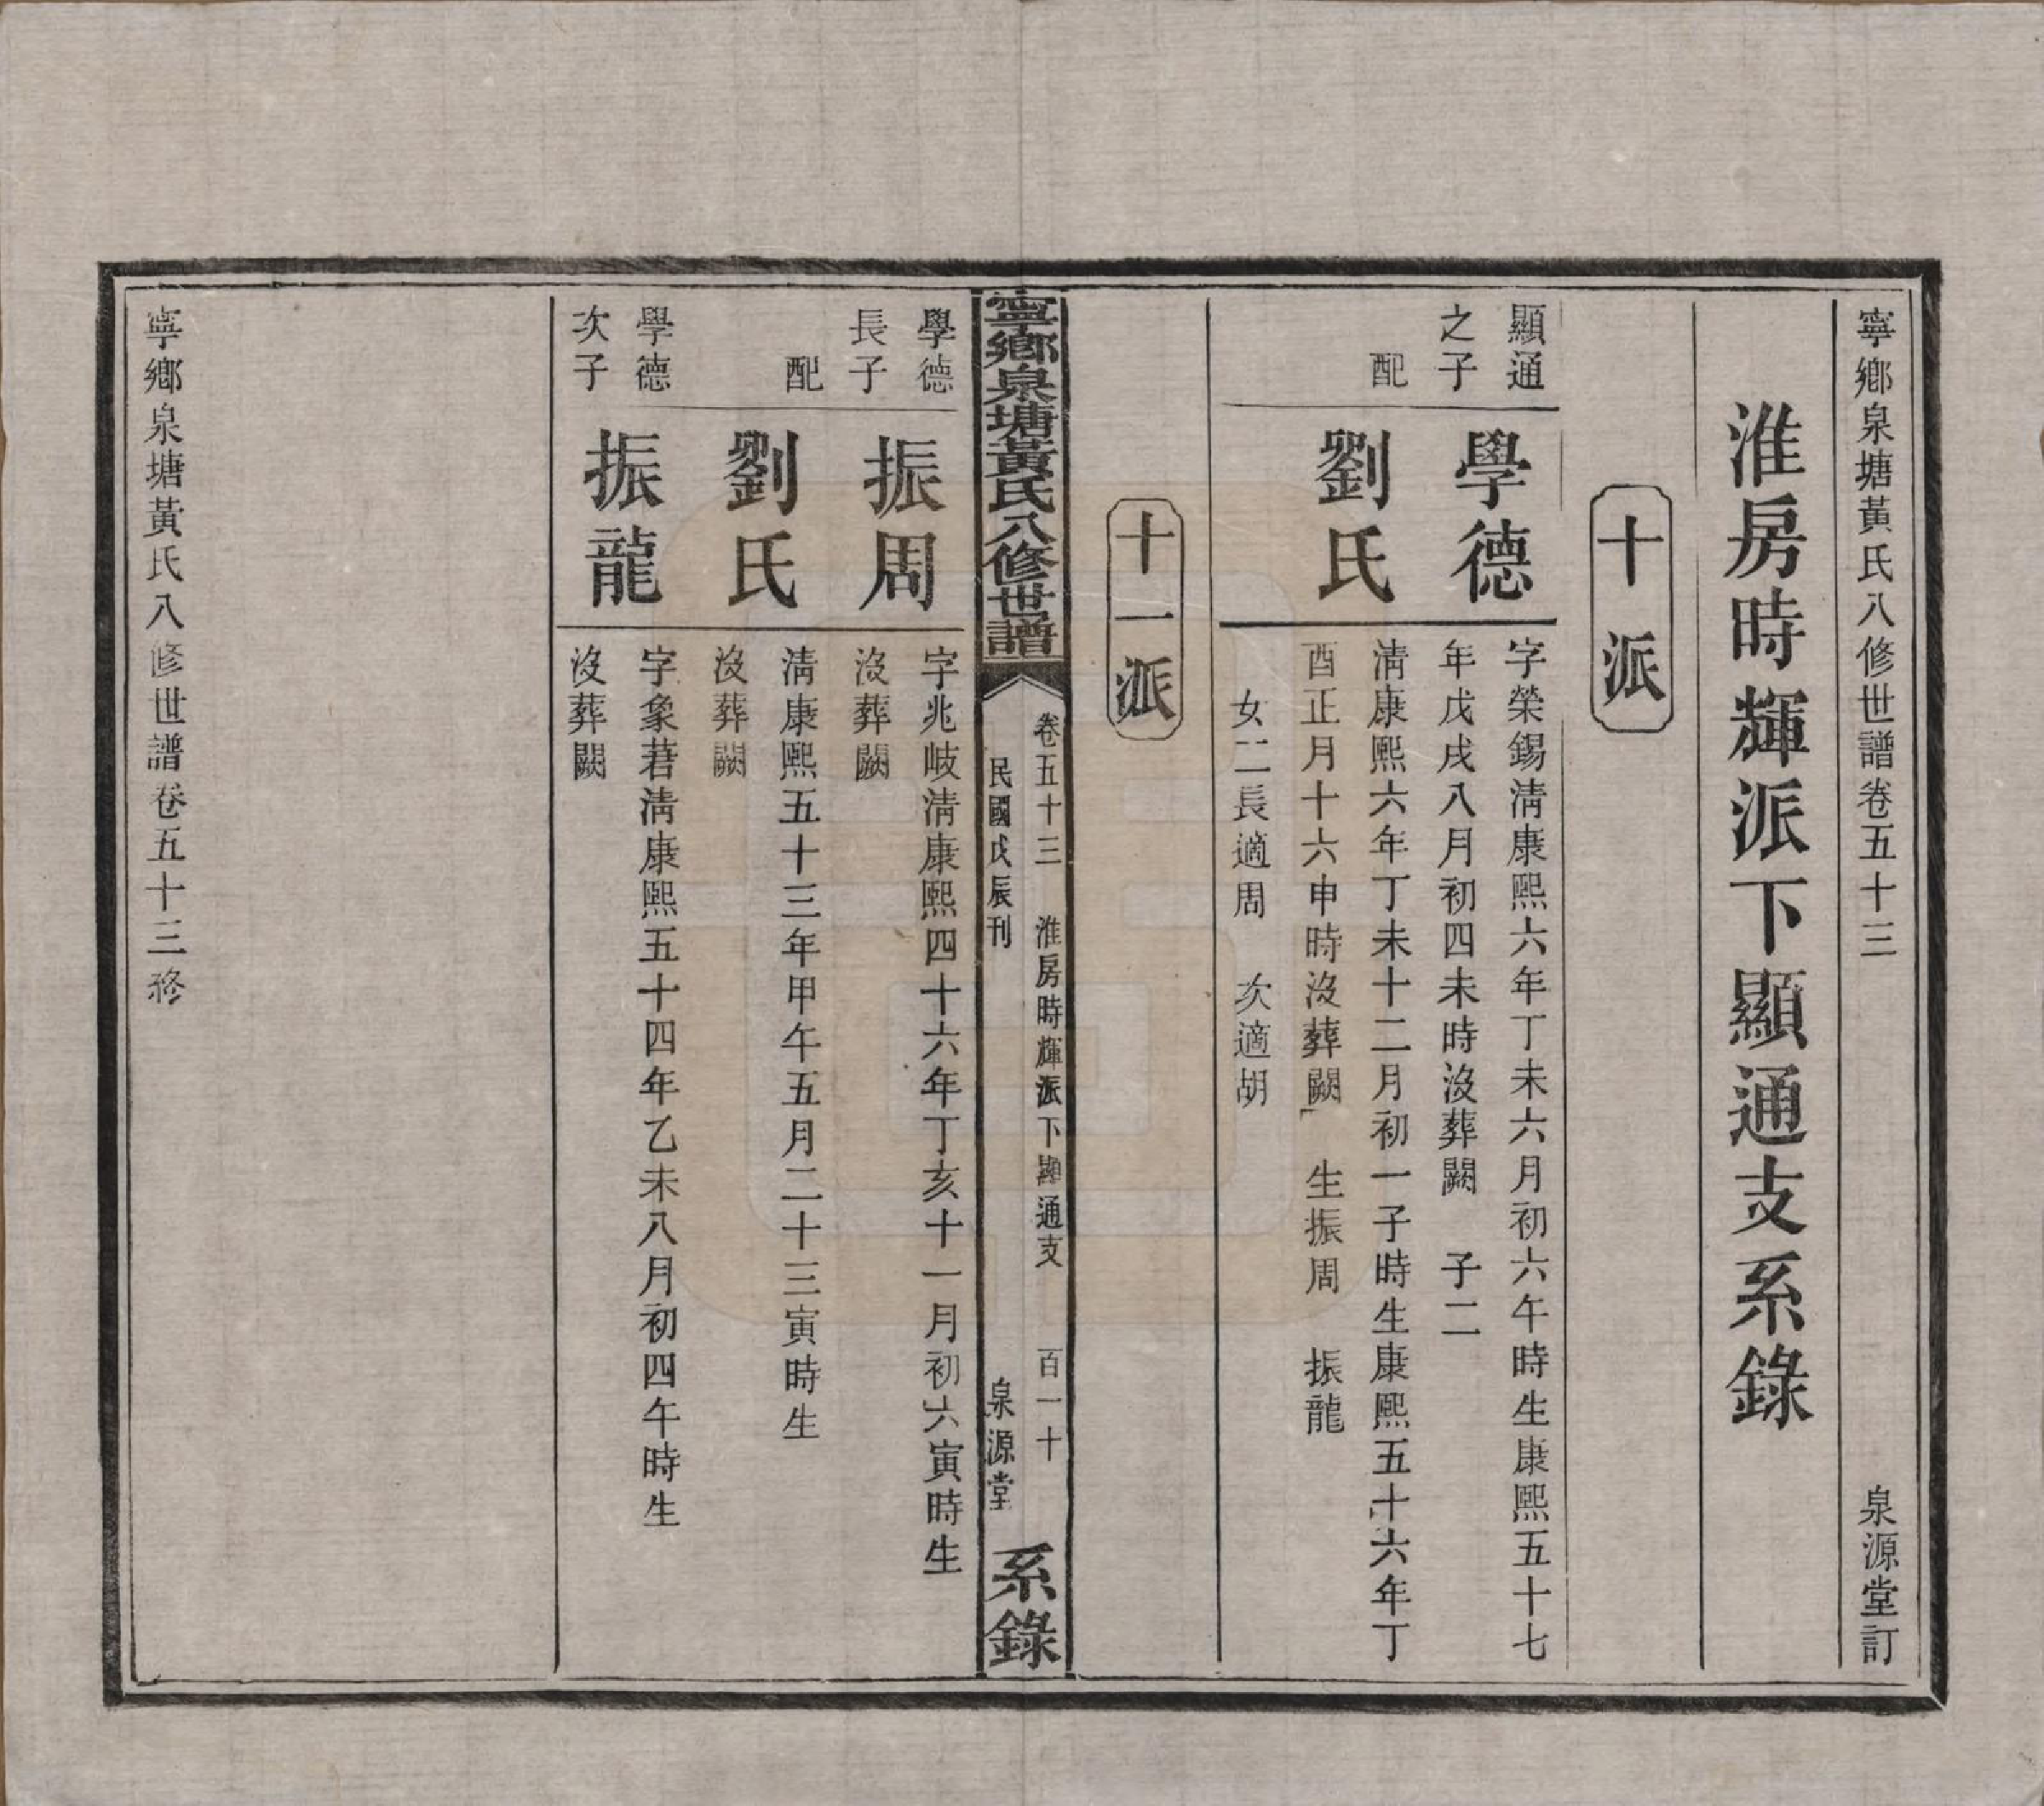 寧鄉泉塘黃氏八修世譜卷五十三 泉源堂訂
淮房時輝派下顯通支系錄
十派
顯通
之子
學德
字榮錫清康熙六年丁未六月初六午時生康熙五十七
年戊戌八月初四未時沒葬闕 子二
配
劉氏
清康熙六年丁未十二月初一子時生康熙五十六年丁
酉正月十六申時沒葬闕 生振周 振龍
女二長適周 次適胡
十一派
寧鄉泉塘黃氏八修世譜
卷五十三 淮房時輝派下顯通支 百一十
民國戊辰刊 泉源堂
系錄
學德
長子
振周
字兆岐清康熙四十六年丁亥十一月初六寅時生
沒葬闕
配
劉氏
清康熙五十三年甲午五月二十三寅時生
沒葬闕
學德
次子
振龍
字象君清康熙五十四年乙未八月初四午時生
沒葬闕
寧鄉泉塘黃氏八修世譜卷五十三終